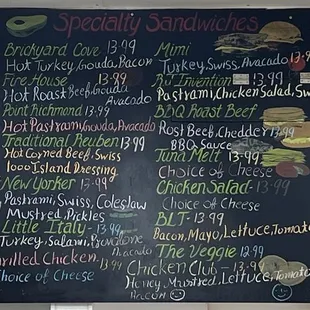 Specialty Sandwiches
Brickyard Cove 13.99
Hot Turkey, Gouda, Bacon
Fire House 13.99
Hot Roast Beef, Gouda
Avocado
Point Richmond 13.99
Hot Pastrami, Gouda, Avocado
Traditional Reuben 13.99
Hot Corned Beef, Swiss
1000 Island Dressing
New Yorker 13.99
Pastrami, Swiss, Coleslaw
Mustred, Pickles
Little Italy - 13.99
Turkey, Salami, Provolone
Avacado
rilled Chicken. 13.99
Choice of Cheese
Mimi 13.99
Turkey, Swiss, Avacado 13.99
RJ Invention
Pastrami, Chicken Salad, Sw
BBQ Roast Beef
Rost Beef, Chedder 13.99
BBQ Sauce
Tuna Melt 13.99
Choice of Cheese
Chicken Salad - 13.99
Choice of Cheese
BLT - 13.99
Bacon, Mayo, Lettuce, Tomato
The Veggie 12.99
Chicken Club - 13.99
Honey Mustred, Lettuce, Tomato
Bacon